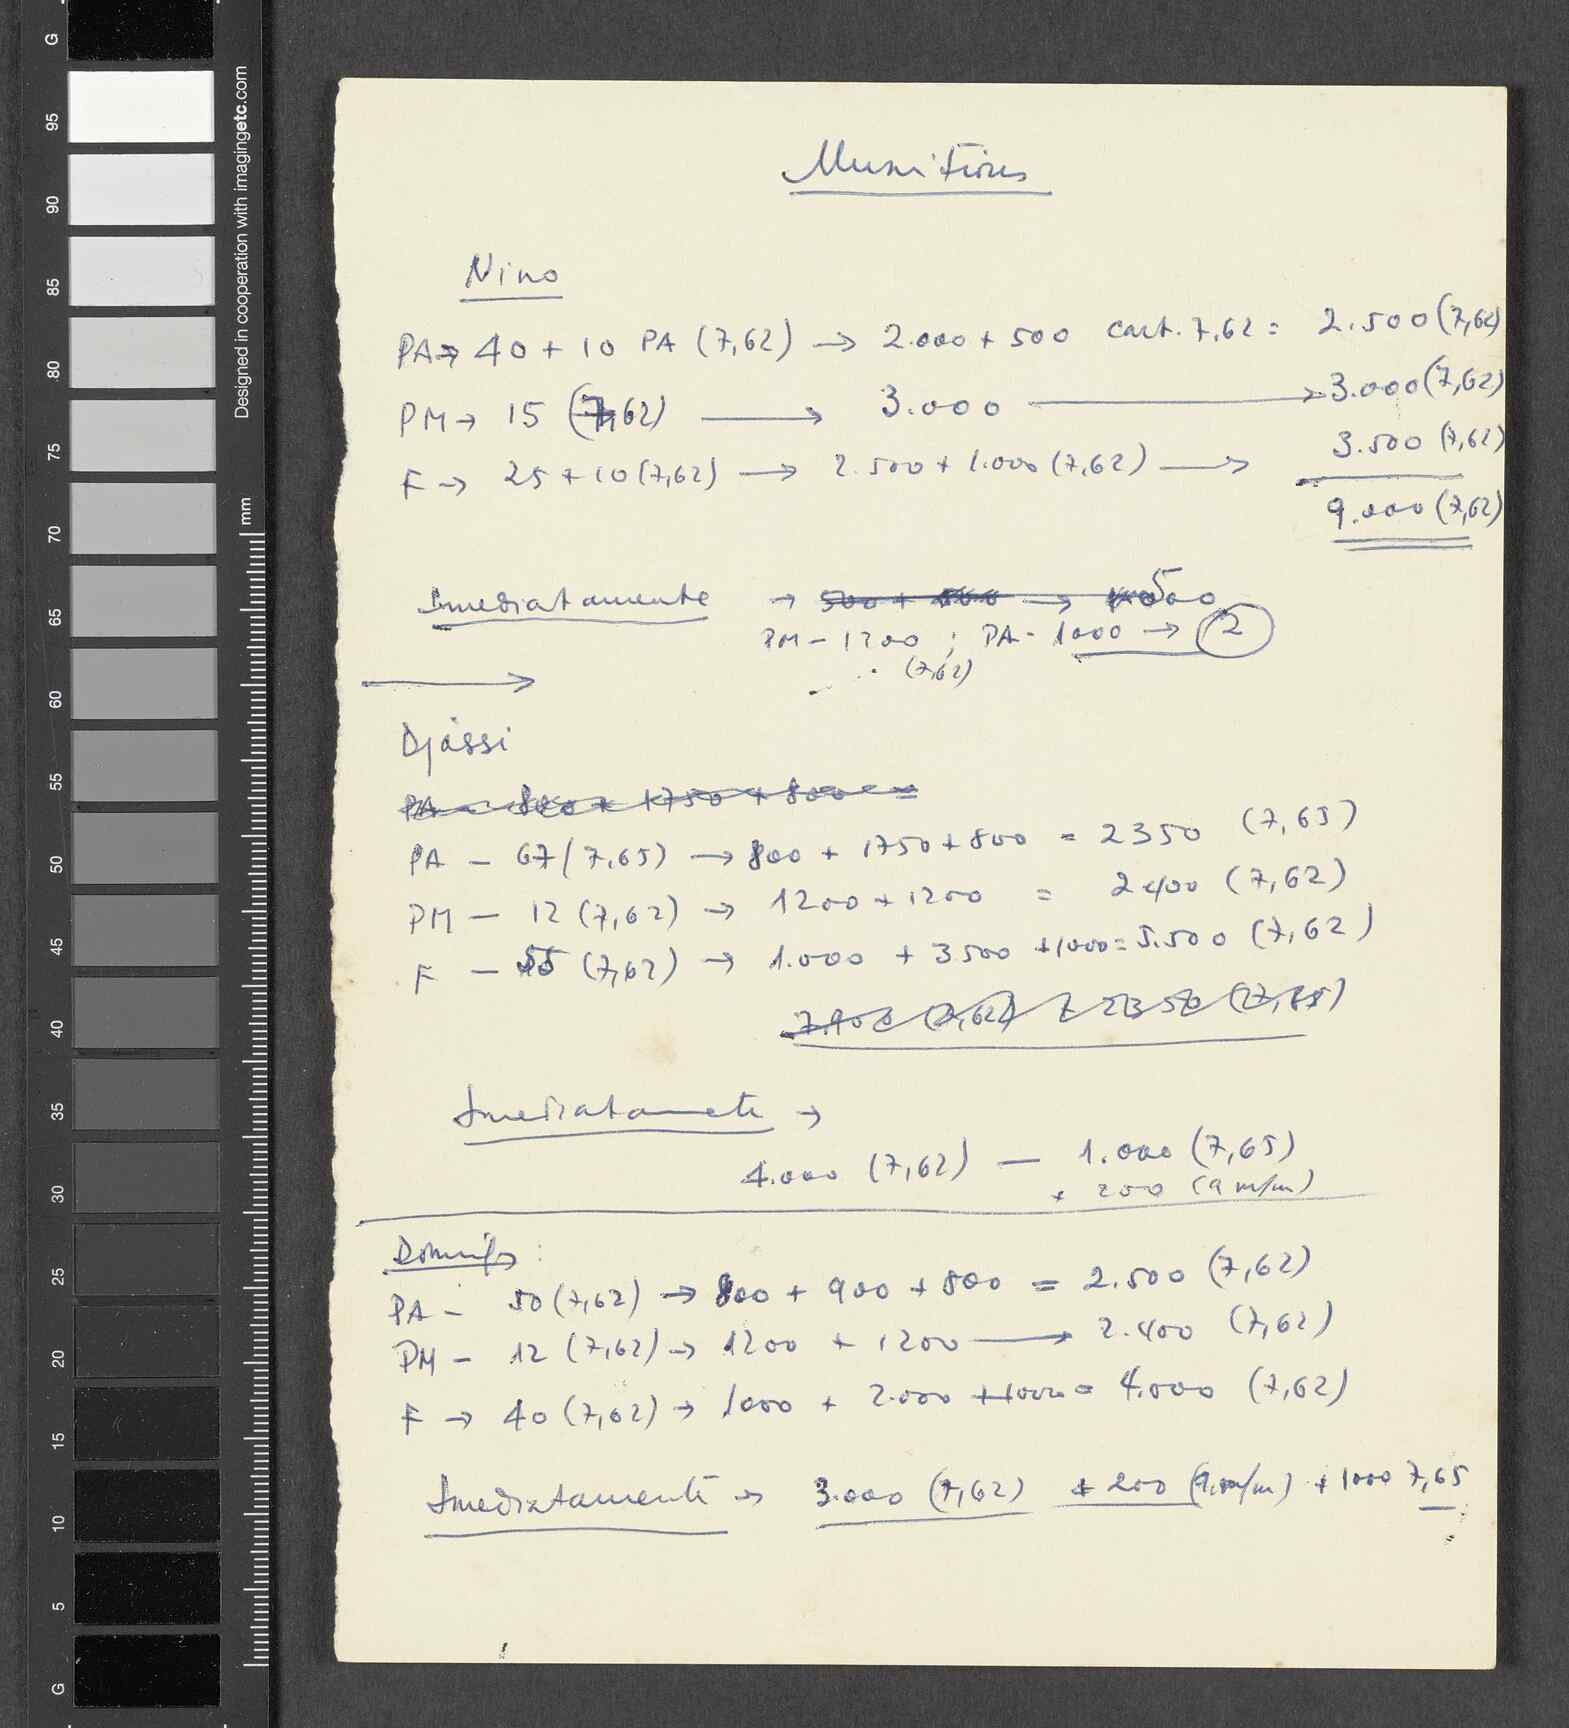 Munitions
Nino
PA → 40 + 10 PA (7,62) → 2.000 + 500 cart. 7,62 = 2.500 (7,62)
PM → 15 (7,62) → 3.000 → 3.000 (7,62)
F → 25 + 10 (7,62) → 2.500 + 1.000 (7,62) → 3.500 (7,62)
9.000 (7,62)
Imediatamente → 500 + 500 →
PM - 1200 ; PA - 1000 → 2
(7,62)
Djassi
PA - 800 + 1750 + 800 =
PA - 67 (7,65) → 800 + 1750 + 800 = 2350 (7,65)
PM - 12 (7,62) → 1200 + 1200 = 2400 (7,62)
F - 55 (7,62) → 1.000 + 3.500 + 1000 = 5.500 (7,62)
7.900 (7,62) 2350 (7,65)
Imediatamete →
4.000 (7,62) — 1.000 (7,65)
+ 200 (9 m/m)
Domingos :
PA - 50 (7,62) → 800 + 900 + 800 = 2.500 (7,62)
PM - 12 (7,62) → 1200 + 1200 → 2.400 (7,62)
F → 40 (7,62) → 1000 + 2.000 + 1000 = 4.000 (7,62)
Imediatamente → 3.000 (7,62) + 200 (9 m/m) + 1000 7,65
Designed in cooperation with imagingetc.com
mm
G
95
90
85
80
75
70
65
60
55
50
45
40
35
30
25
20
15
10
5
G